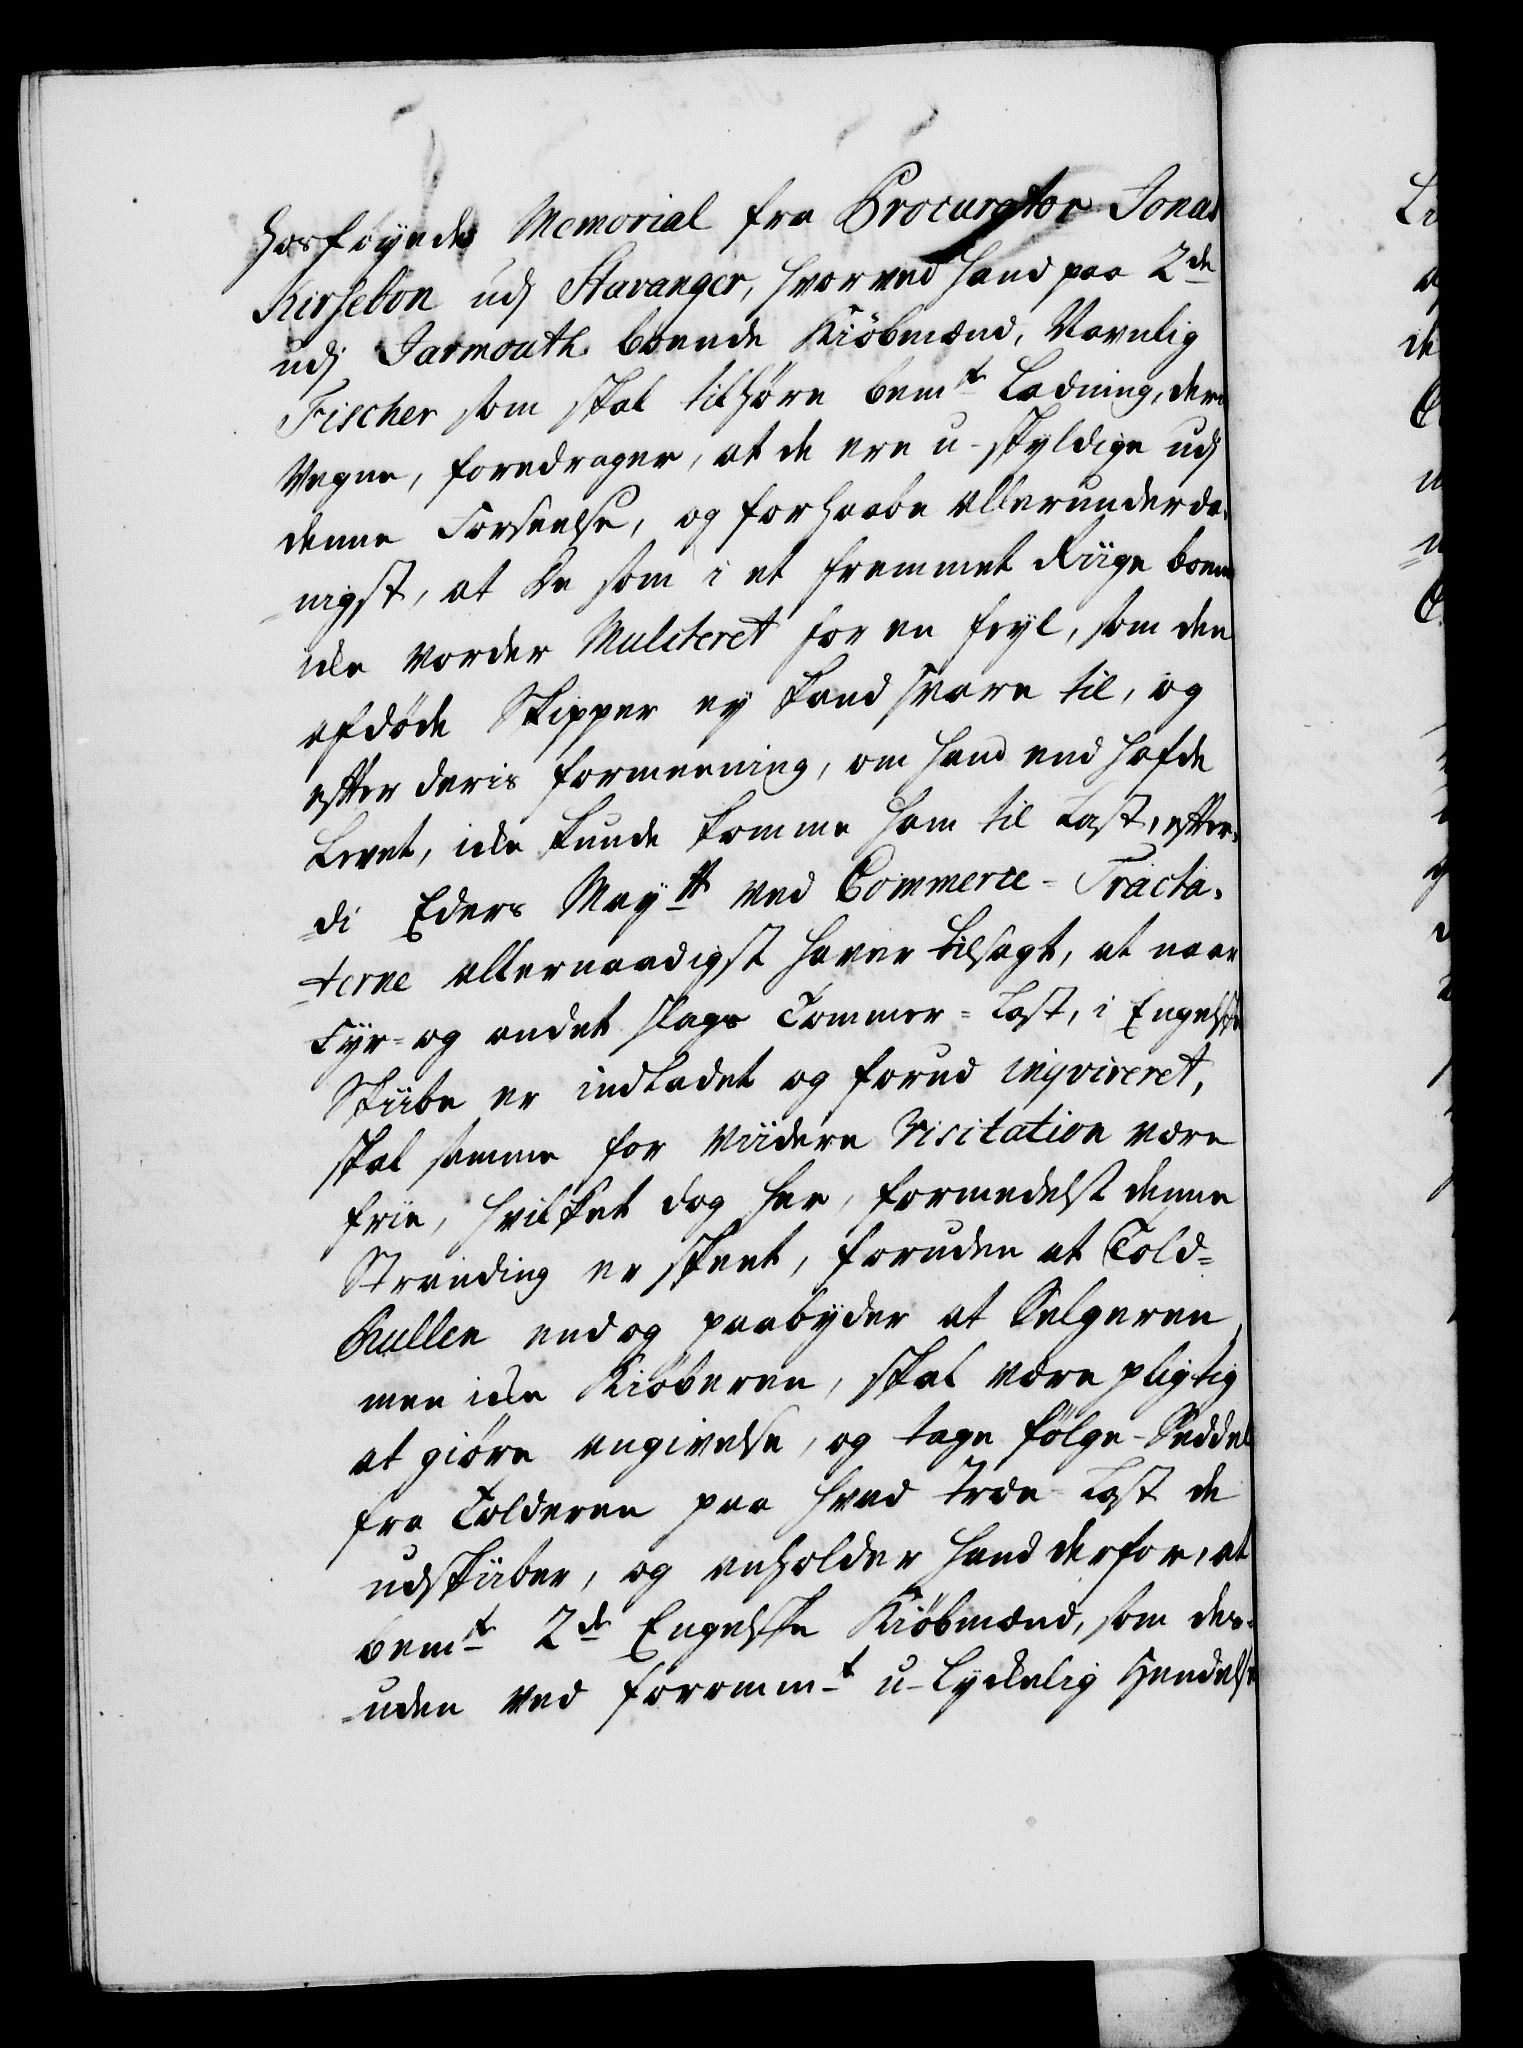 hosføyede Memorial fra Procurator Jonas
Kirsebon udj Stavanger, hvorved hand paa 2de
udj Jarmouth boende Kiöbmænd, Navnlig
Fischer som skal tilhøre bemte Ladning, deris
Vegne, foredrager, at de ere u-skyldige udj
denne Forseelse, og forhaabe allerunderda-
-nigst, at de som i et fremmet Riige boende
icke vorder Mulcteret for en feyl, som den
afdöde Skipper ey kand svare til, og
efter deris formeening, om hand end hafde
Levet, icke kunde komme ham til Last, efter-
-di Eders Maytt ved Commerce-Tracta-
-terne allernaadigst haver tilsagt, at naar
Fyr- og andet slags Tømmer-Last, i Engelske
Skiibe er indladet og forud inqvireret,
skal samme for Viidere Visitation være
frie, hvilket dog her, formedelst denne
Stranding er skeet, foruden at Told-
Rullen endog paabyder at Selgeren,
men icke Kiøberen, skal være pligtig
at giøre angivelse, og tage følge-Seddel
fra Tolderen paa hvad Træe-Last de
udskiiber, og anholder hand derfor, at
bemte 2de Engelske Kiøbmænd, som des-
-uden ved forommt u-Lyckelig Hendelse